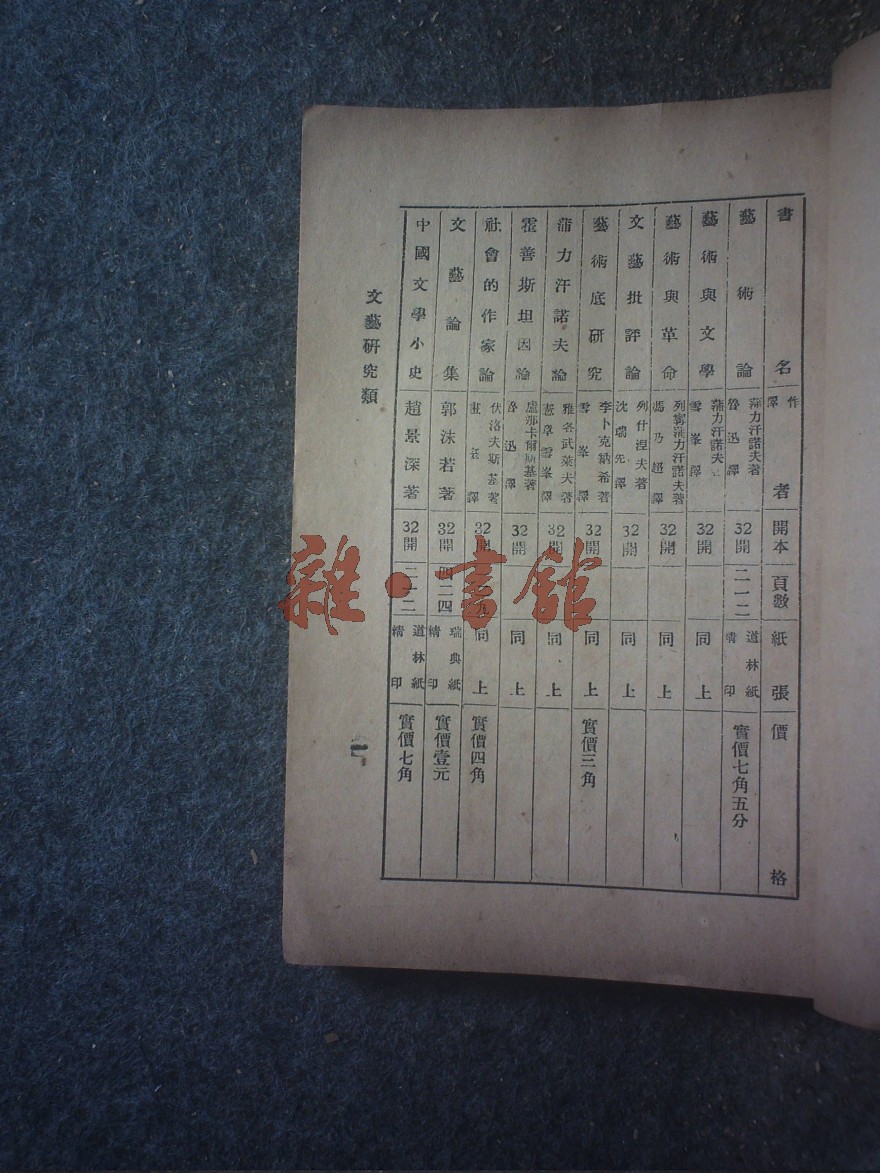 書名 作譯者 開本 頁數 紙張 價格
藝術論 蒲力汗諾夫著 魯迅譯 32開 二一二 道林紙精印 實價七角五分
藝術與文學 蒲力汗諾夫 雪峯譯 32開 同上
藝術與革命 列寧蒲力汗諾夫著 馮乃超譯 32開 同上
文藝批評論 列什涅夫著 沈端先譯 32開 同上
藝術底研究 李卜克納希著 雪峯譯 32開 同上 實價三角
蒲力汗諾夫論 雅各武萊夫著 雪峯譯 32開 同上
霍善斯坦因論 盧那卡爾斯基著 魯迅譯 32開 同上
社會的作家論 伏洛夫斯基著 畫室譯 32開 同上 實價四角
文藝論集 郭沫若著 32開 四二四 瑞典紙精印 實價壹元
中國文學小史 趙景深著 32開 二一二 道林紙精印 實價七角
文藝研究類
一
雜·書館